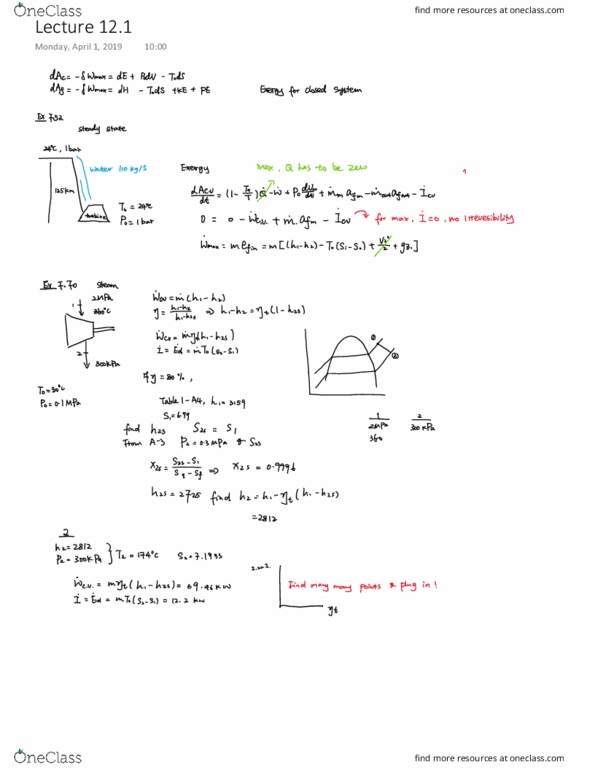 OneClass
find more resources at oneclass.com
Lecture 12.1
Monday, April 1, 2019 10:00
dAc = -δWmax = dE + P₀dV - T₀dS
dAf = -δWmax = dH - T₀dS + KE + PE
Exergy for closed system
Ex 7.32
steady state
24°C, 1 bar
water 110 kg/s
turbine
T₀ = 24°C
P₀ = 1 bar
Exergy
max, Q has to be zero
dAcv/dt = (1 - T₀/T)Q̇ - Ẇ + P₀ dV/dt + ṁin afin - ṁout afout - İcv
0 = 0 - Ẇc.v. + ṁ. afin - İcv
for max, İ=0, no irreversibility
Ẇmax = m efin = m[(h₁-h₀) - T₀(S₁-S₀) + V₁²/2 + gz₁]
Ex 7.70
steam
1
2MPa
360°C
2
300kPa
T₀ = 30°C
P₀ = 0.1 MPa
Ẇcv = ṁ(h₁-h₂)
η = h₁-h₂/h₁-h₂s ⇒ h₁-h₂ = ηt(1-h2s)
Ẇcv = ṁηt(h₁-h2s)
İ = Ėd = ṁT₀(S₂-S₁)
If η = 80%,
Table 1-A4, h₁ = 3159
S₁ = 6.99
find h2s S2s = S₁
From A-3 P₂ = 0.3 MPa & S2s
x2s = S2s-Sf/Sg-Sf ⇒ x2s = 0.9996
h2s = 2725 find h₂ = h₁-ηt(h₁-h2s)
= 2812
① ②
1 2
2MPa 300 kPa
360
2
h₂ = 2812
P₂ = 300kPa
} T₂ = 174°C S₂ = 7.1955
Ẇc.v. = mηt(h₁-h2s) = 69.46 kW
İ = Ėd = mT₀(S₂-S₁) = 12.2 kW
Find many many points & plug in!
ηt
OneClass
find more resources at oneclass.com